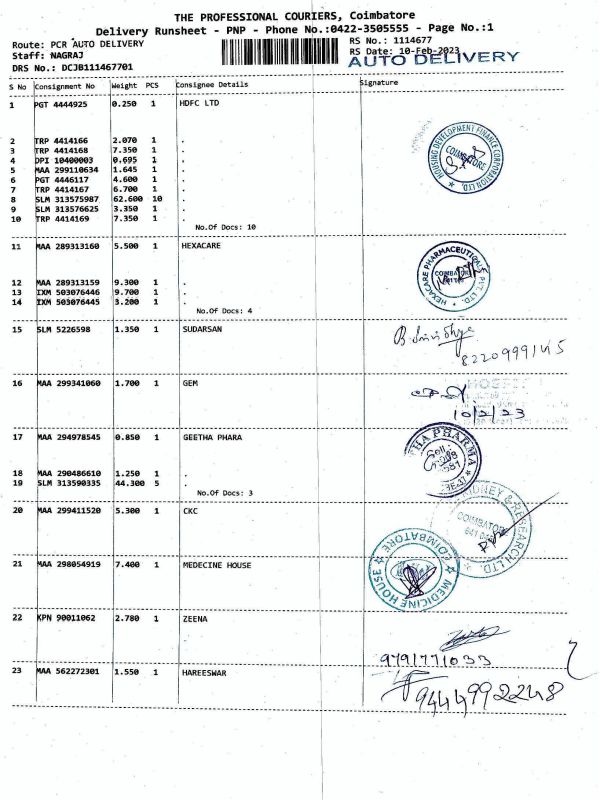 THE PROFESSIONAL COURIERS, Coimbatore
Delivery Runsheet - PNP - Phone No.:0422-3505555 - Page No.:1
Route: PCR AUTO DELIVERY
RS No.: 1114677
Staff: NAGRAJ
RS Date: 10-Feb-2023
AUTO DELIVERY
DRS No.: DCJB111467701
S No Consignment No Weight PCS Consignee Details Signature
1 PGT 4444925 0.250 1 HDFC LTD
2 TRP 4414166 2.070 1 .
3 TRP 4414168 7.350 1 .
4 DPI 10400003 0.695 1 .
5 MAA 299110634 1.645 1 .
6 PGT 4446117 4.600 1 .
7 TRP 4414167 6.700 1 .
8 SLM 313575987 62.600 10 .
9 SLM 313576625 3.350 1 .
10 TRP 4414169 7.350 1 .
No.Of Docs: 10
HOUSING DEVELOPMENT FINANCE CORPORATION LTD.
COIMBATORE
11 MAA 289313160 5.500 1 HEXACARE
12 MAA 289313159 9.300 1 .
13 IXM 503076446 9.700 1 .
14 IXM 503076445 3.200 1 .
No.Of Docs: 4
HEXACARE PHARMACEUTICALS PVT. LTD.
15 SLM 5226598 1.350 1 SUDARSAN
16 MAA 299341060 1.700 1 GEM
10/2/23
17 MAA 294978545 0.850 1 GEETHA PHARA
18 MAA 290486610 1.250 1 .
19 SLM 313590335 44.300 5 .
No.Of Docs: 3
HA PHARMA
20 MAA 299411520 5.300 1 CKC
KIDNEY & RESEARCH LTD.
COIMBATORE
21 MAA 298054919 7.400 1 MEDECINE HOUSE
MEDICINE HOUSE
COIMBATORE
22 KPN 90011062 2.780 1 ZEENA
9791771033
23 MAA 562272301 1.550 1 HAREESWAR
9444992248